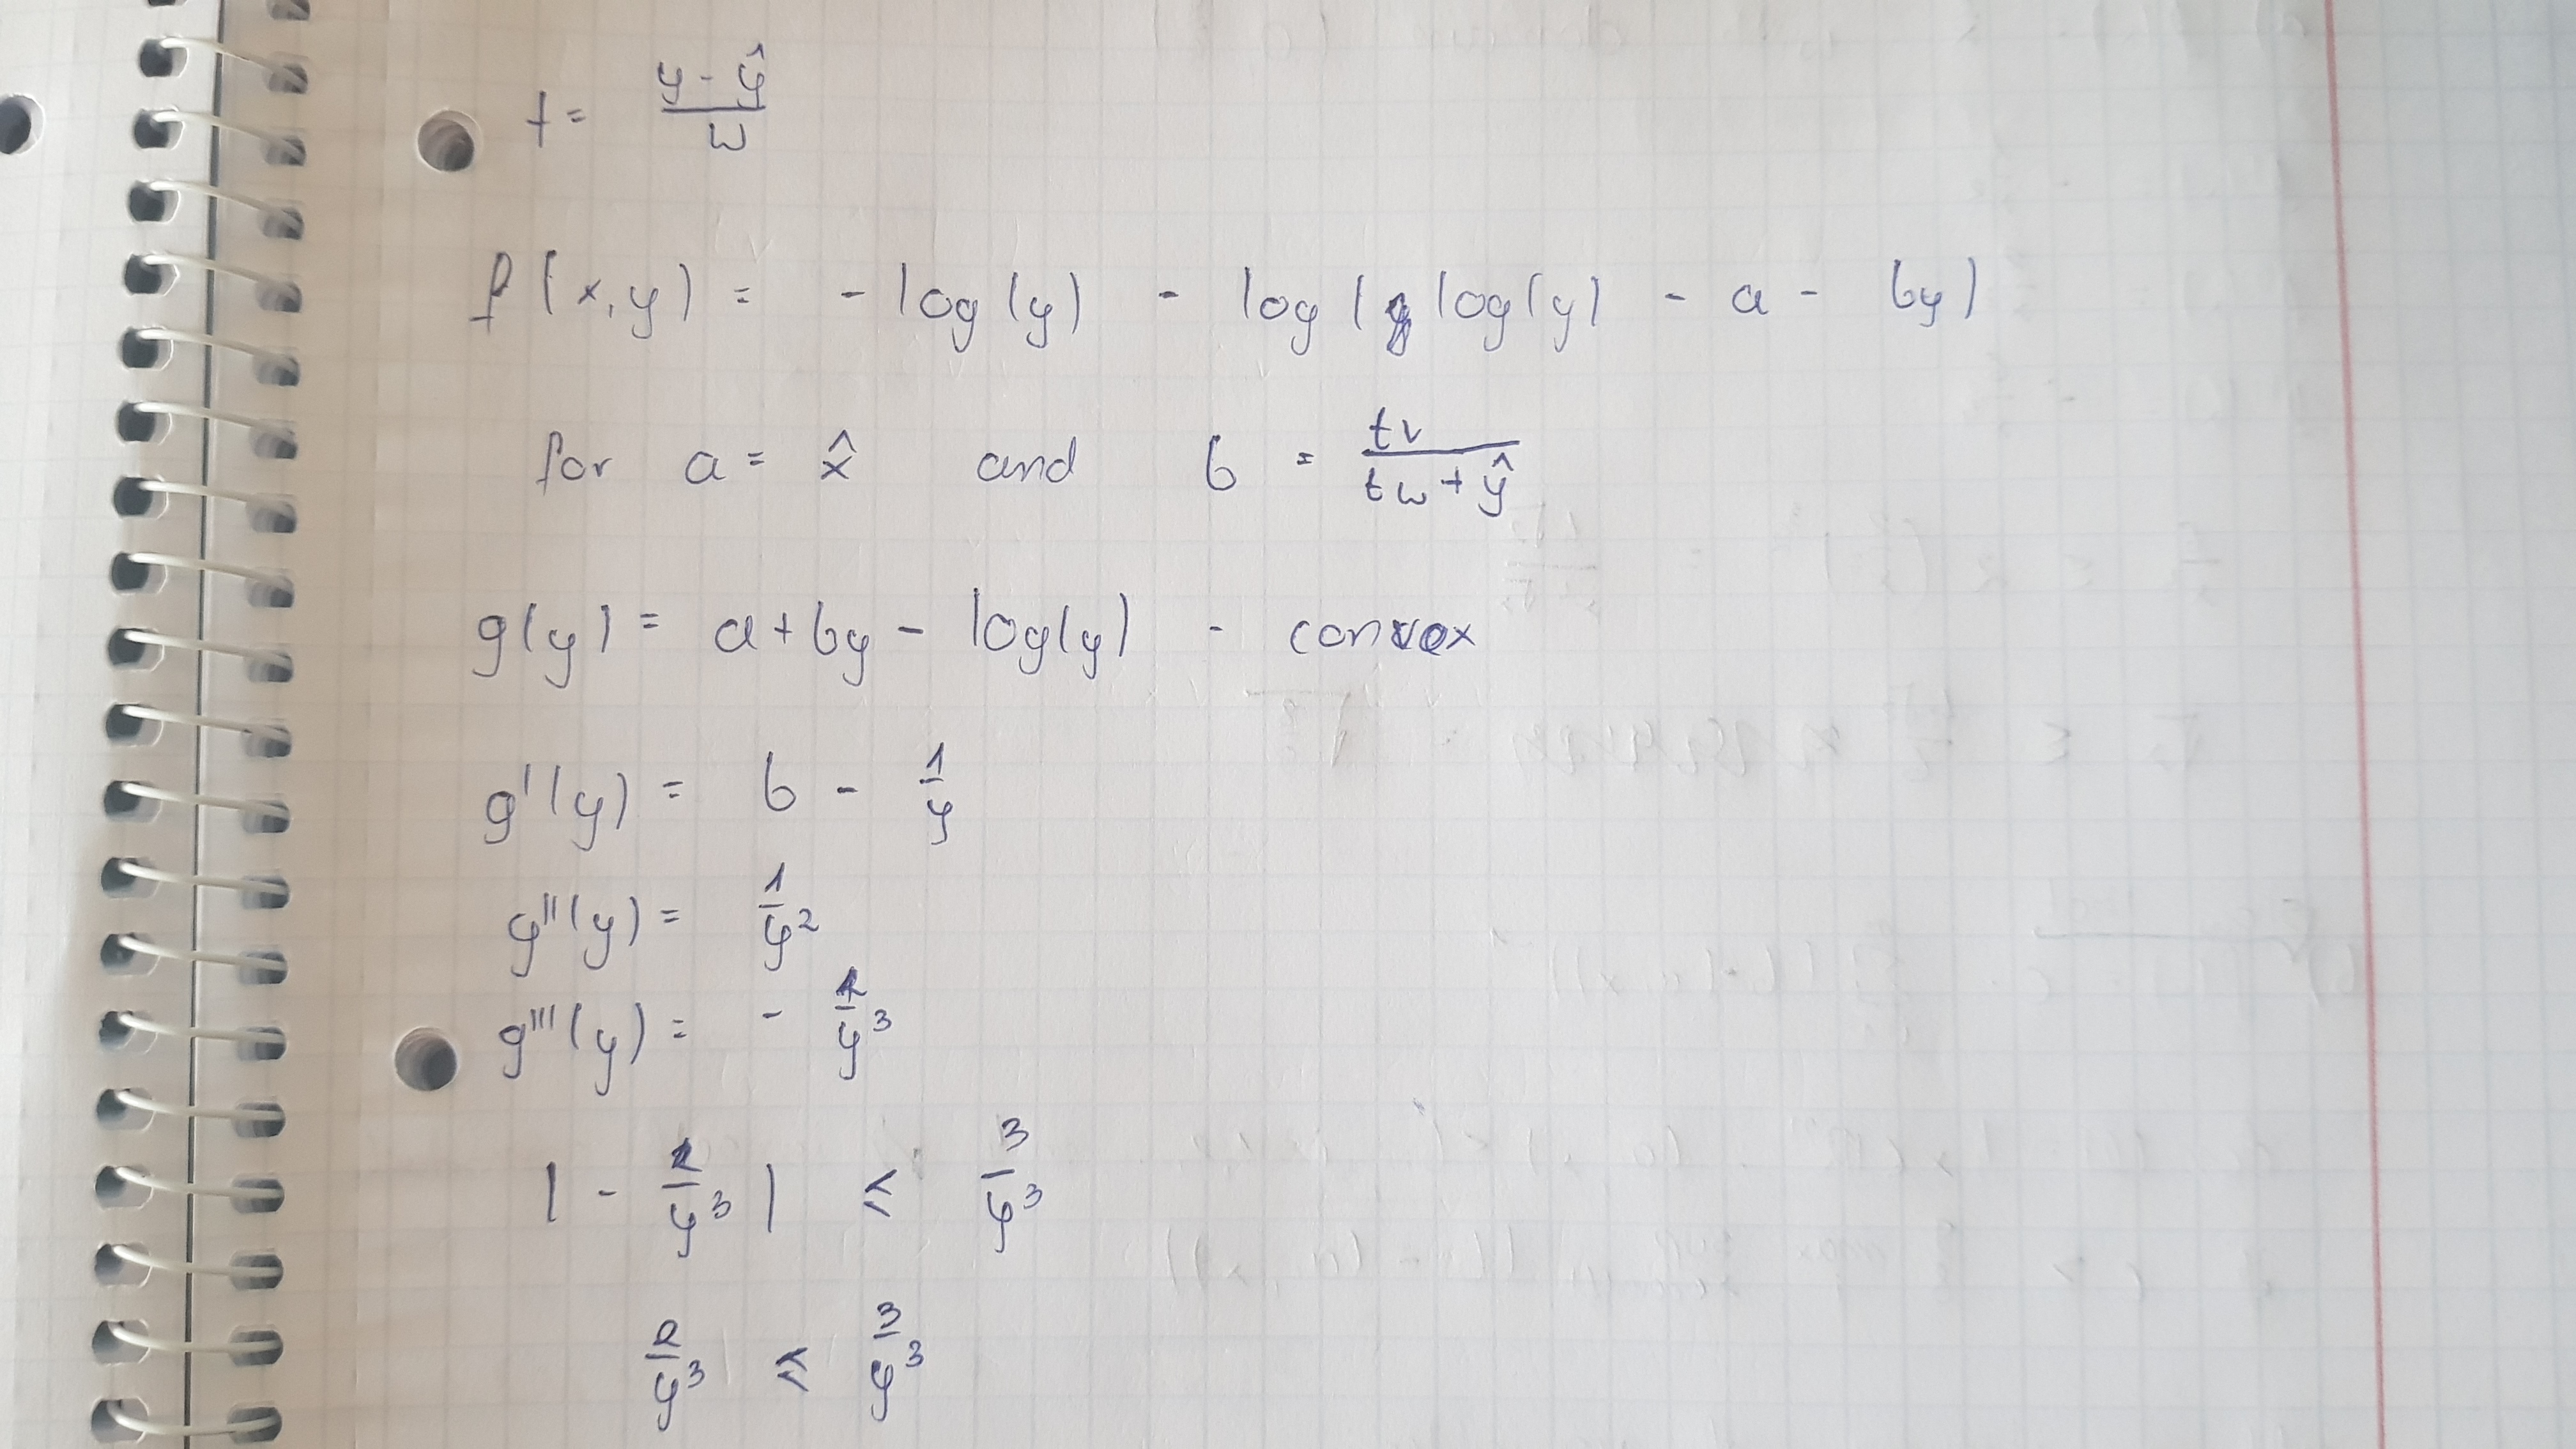 t = (y - ŷ) / ω
f(x, y) = - log(y) - log( log(y) - a - by)
for a = x̂ and b = tv / (tω + ŷ)
g(y) = a + by - log(y) - convex
g'(y) = b - 1/y
g''(y) = 1/y²
g'''(y) = - 2/y³
| - 2/y³ | ≤ 3/y³
2/y³ ≤ 3/y³